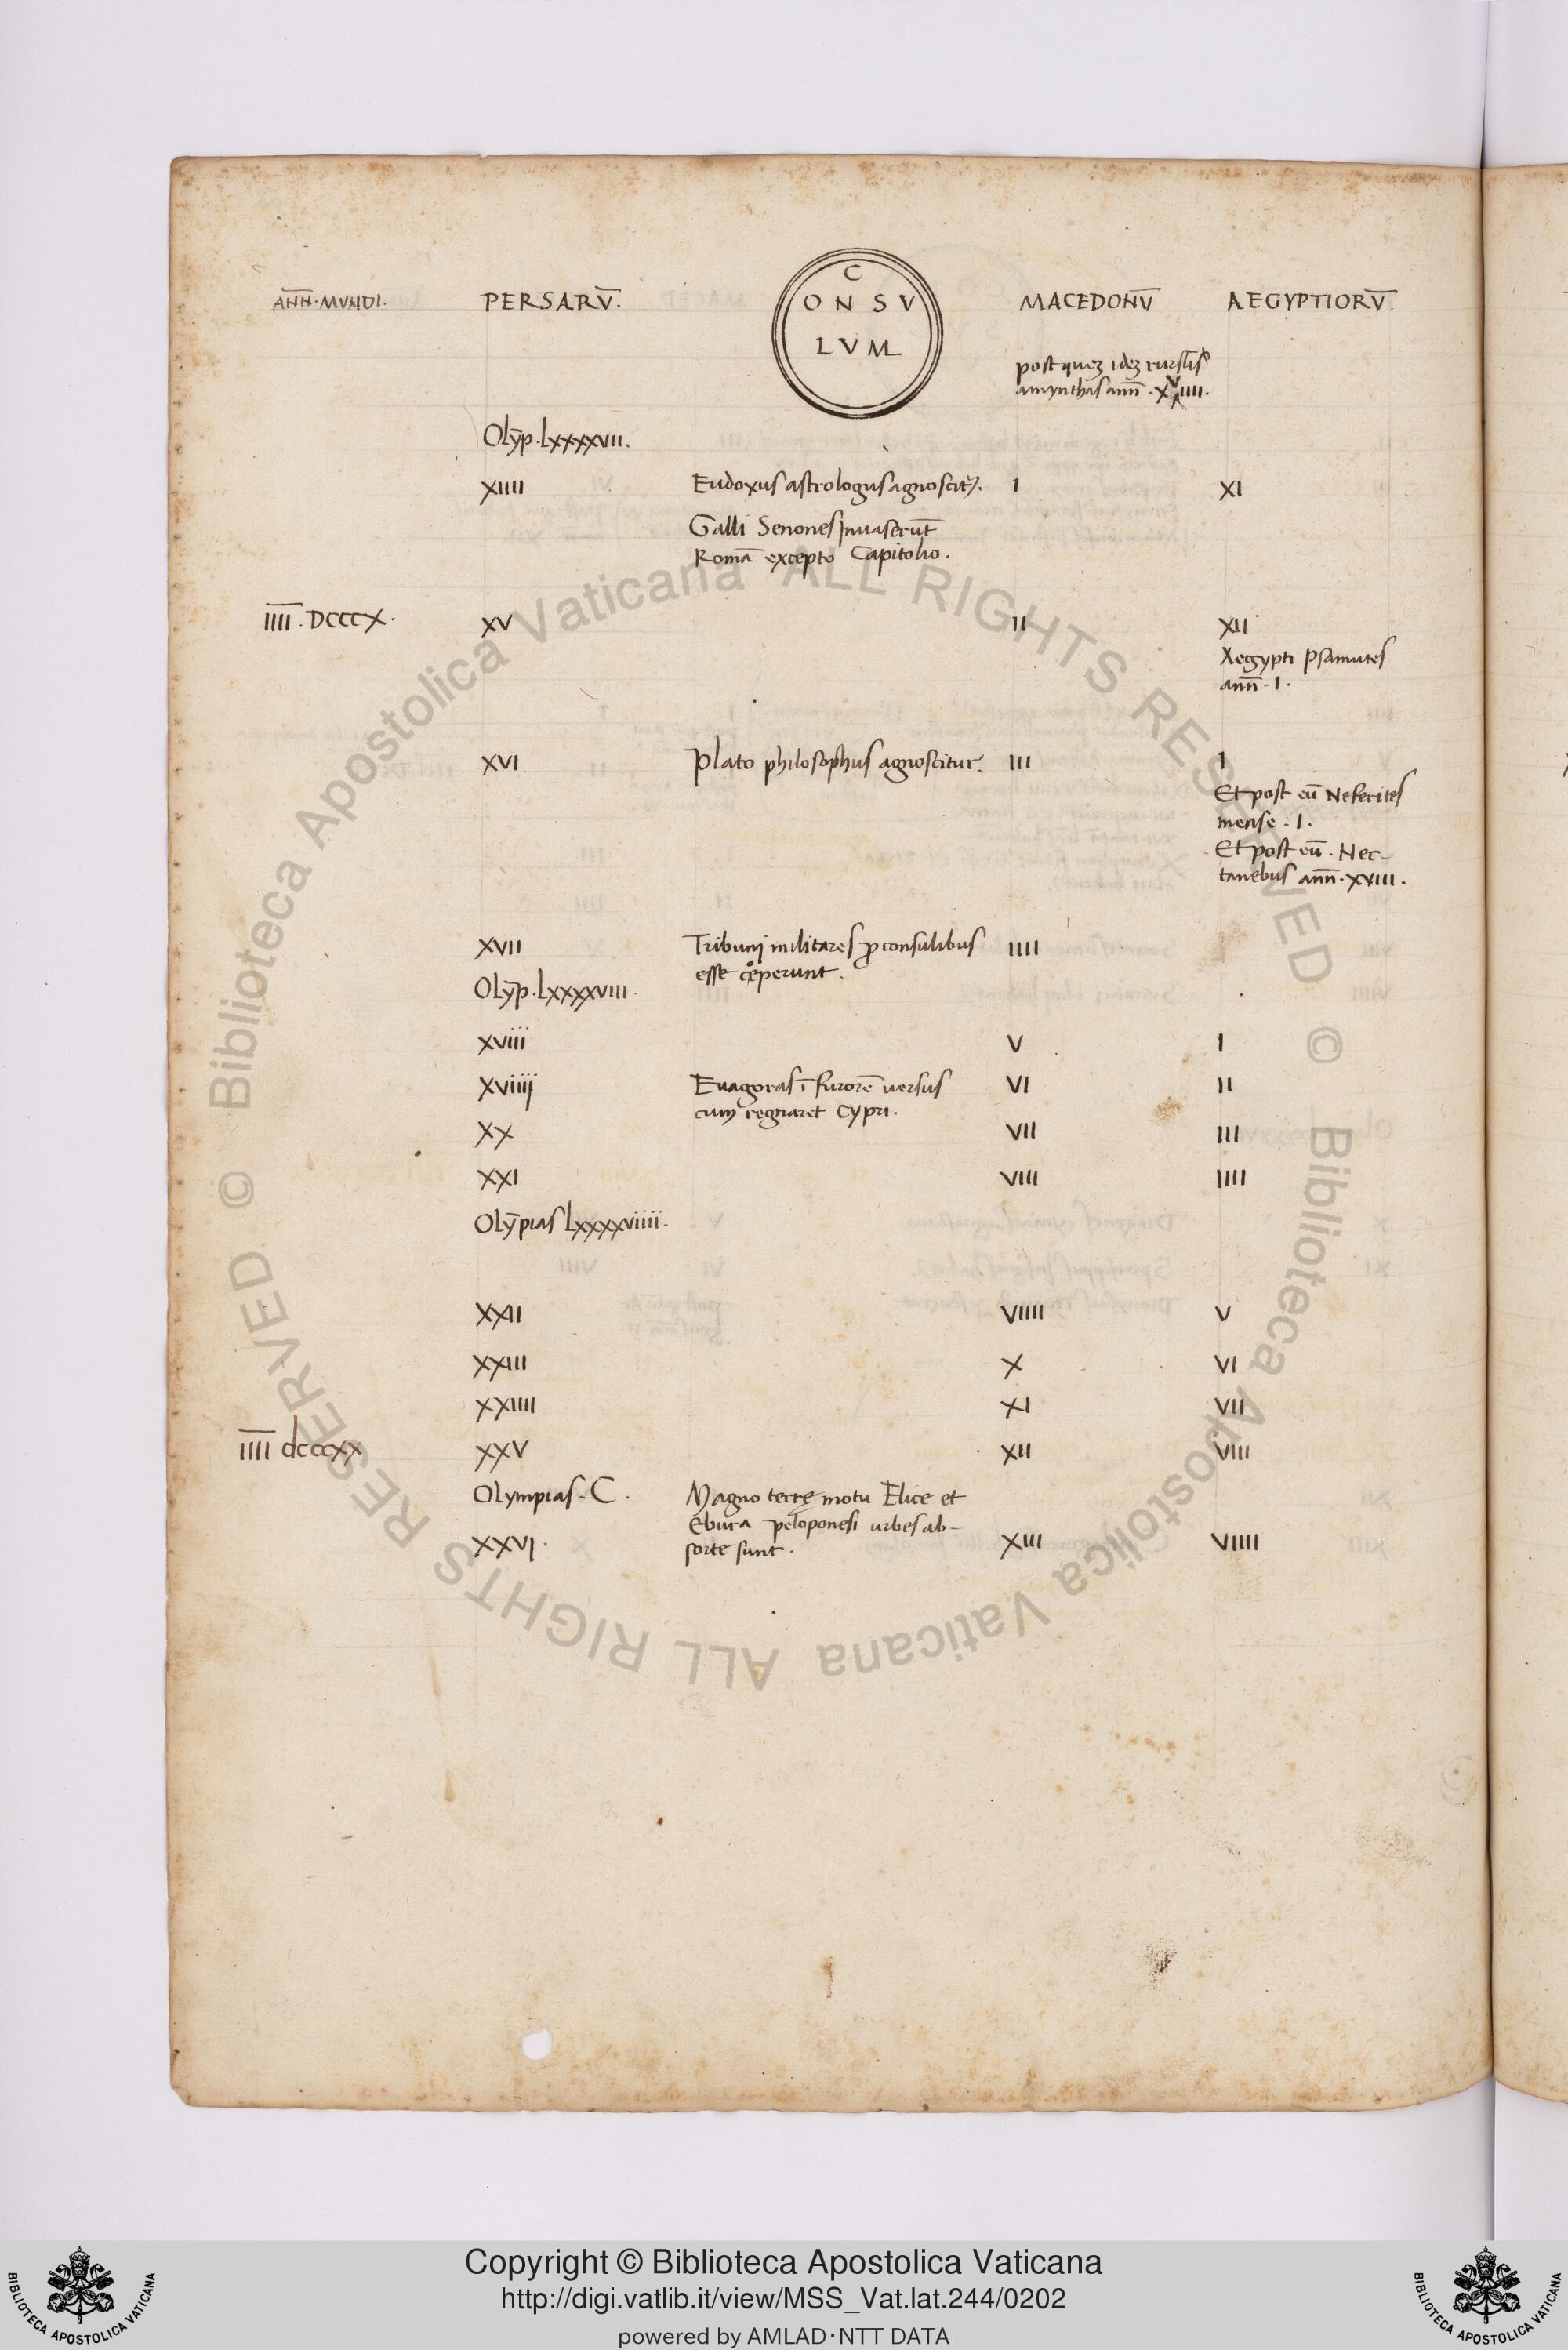 C
ANN̄·MVNDI. PERSARV̄. ONSV MACEDONV̄ AEGYPTIORV̄
LVM
post quez idez rursūs
amynthas ann̄·XVIIII·
Olȳp·lxxxxvii.
XIIII Eudoxus astrologus agnoscit᷑. I XI
Galli Senones Inuaserūt
Romā excepto Capitolio.
I̅I̅I̅I̅·DCCCX· XV II XII
Aegypti Psamutes
ann̄·I·
XVI Plato philosophus agnoscitur. III I
Et post eū Neferites
mense·I·
Et post eū·Nec-
tanebus ann̄·XVIII·
XVII Tribunj militares ꝓ consulibus IIII
esse cœperunt.
Olȳp·lxxxxviii·
XVIII V I
XVIIII Euagoras ī furorē uersus VI II
cum regnaret Cypri.
XX VII III
XXI VIII IIII
Olȳpias lxxxxviiii·
XXII VIIII V
XXIII X VI
XXIIII XI VII
I̅I̅I̅I̅ dcccxx XXV XII VIII
Olympias·C· Magno terrę motu Elice et
Ebura peloponesi urbes ab-
XXVI· sorte sunt. XIII VIIII
© Biblioteca Apostolica Vaticana ALL RIGHTS RESERVED © Biblioteca Apostolica Vaticana ALL RIGHTS RESERVED
Copyright © Biblioteca Apostolica Vaticana
http://digi.vatlib.it/view/MSS_Vat.lat.244/0202
powered by AMLAD·NTT DATA
BIBLIOTECA APOSTOLICA VATICANA
BIBLIOTECA APOSTOLICA VATICANA